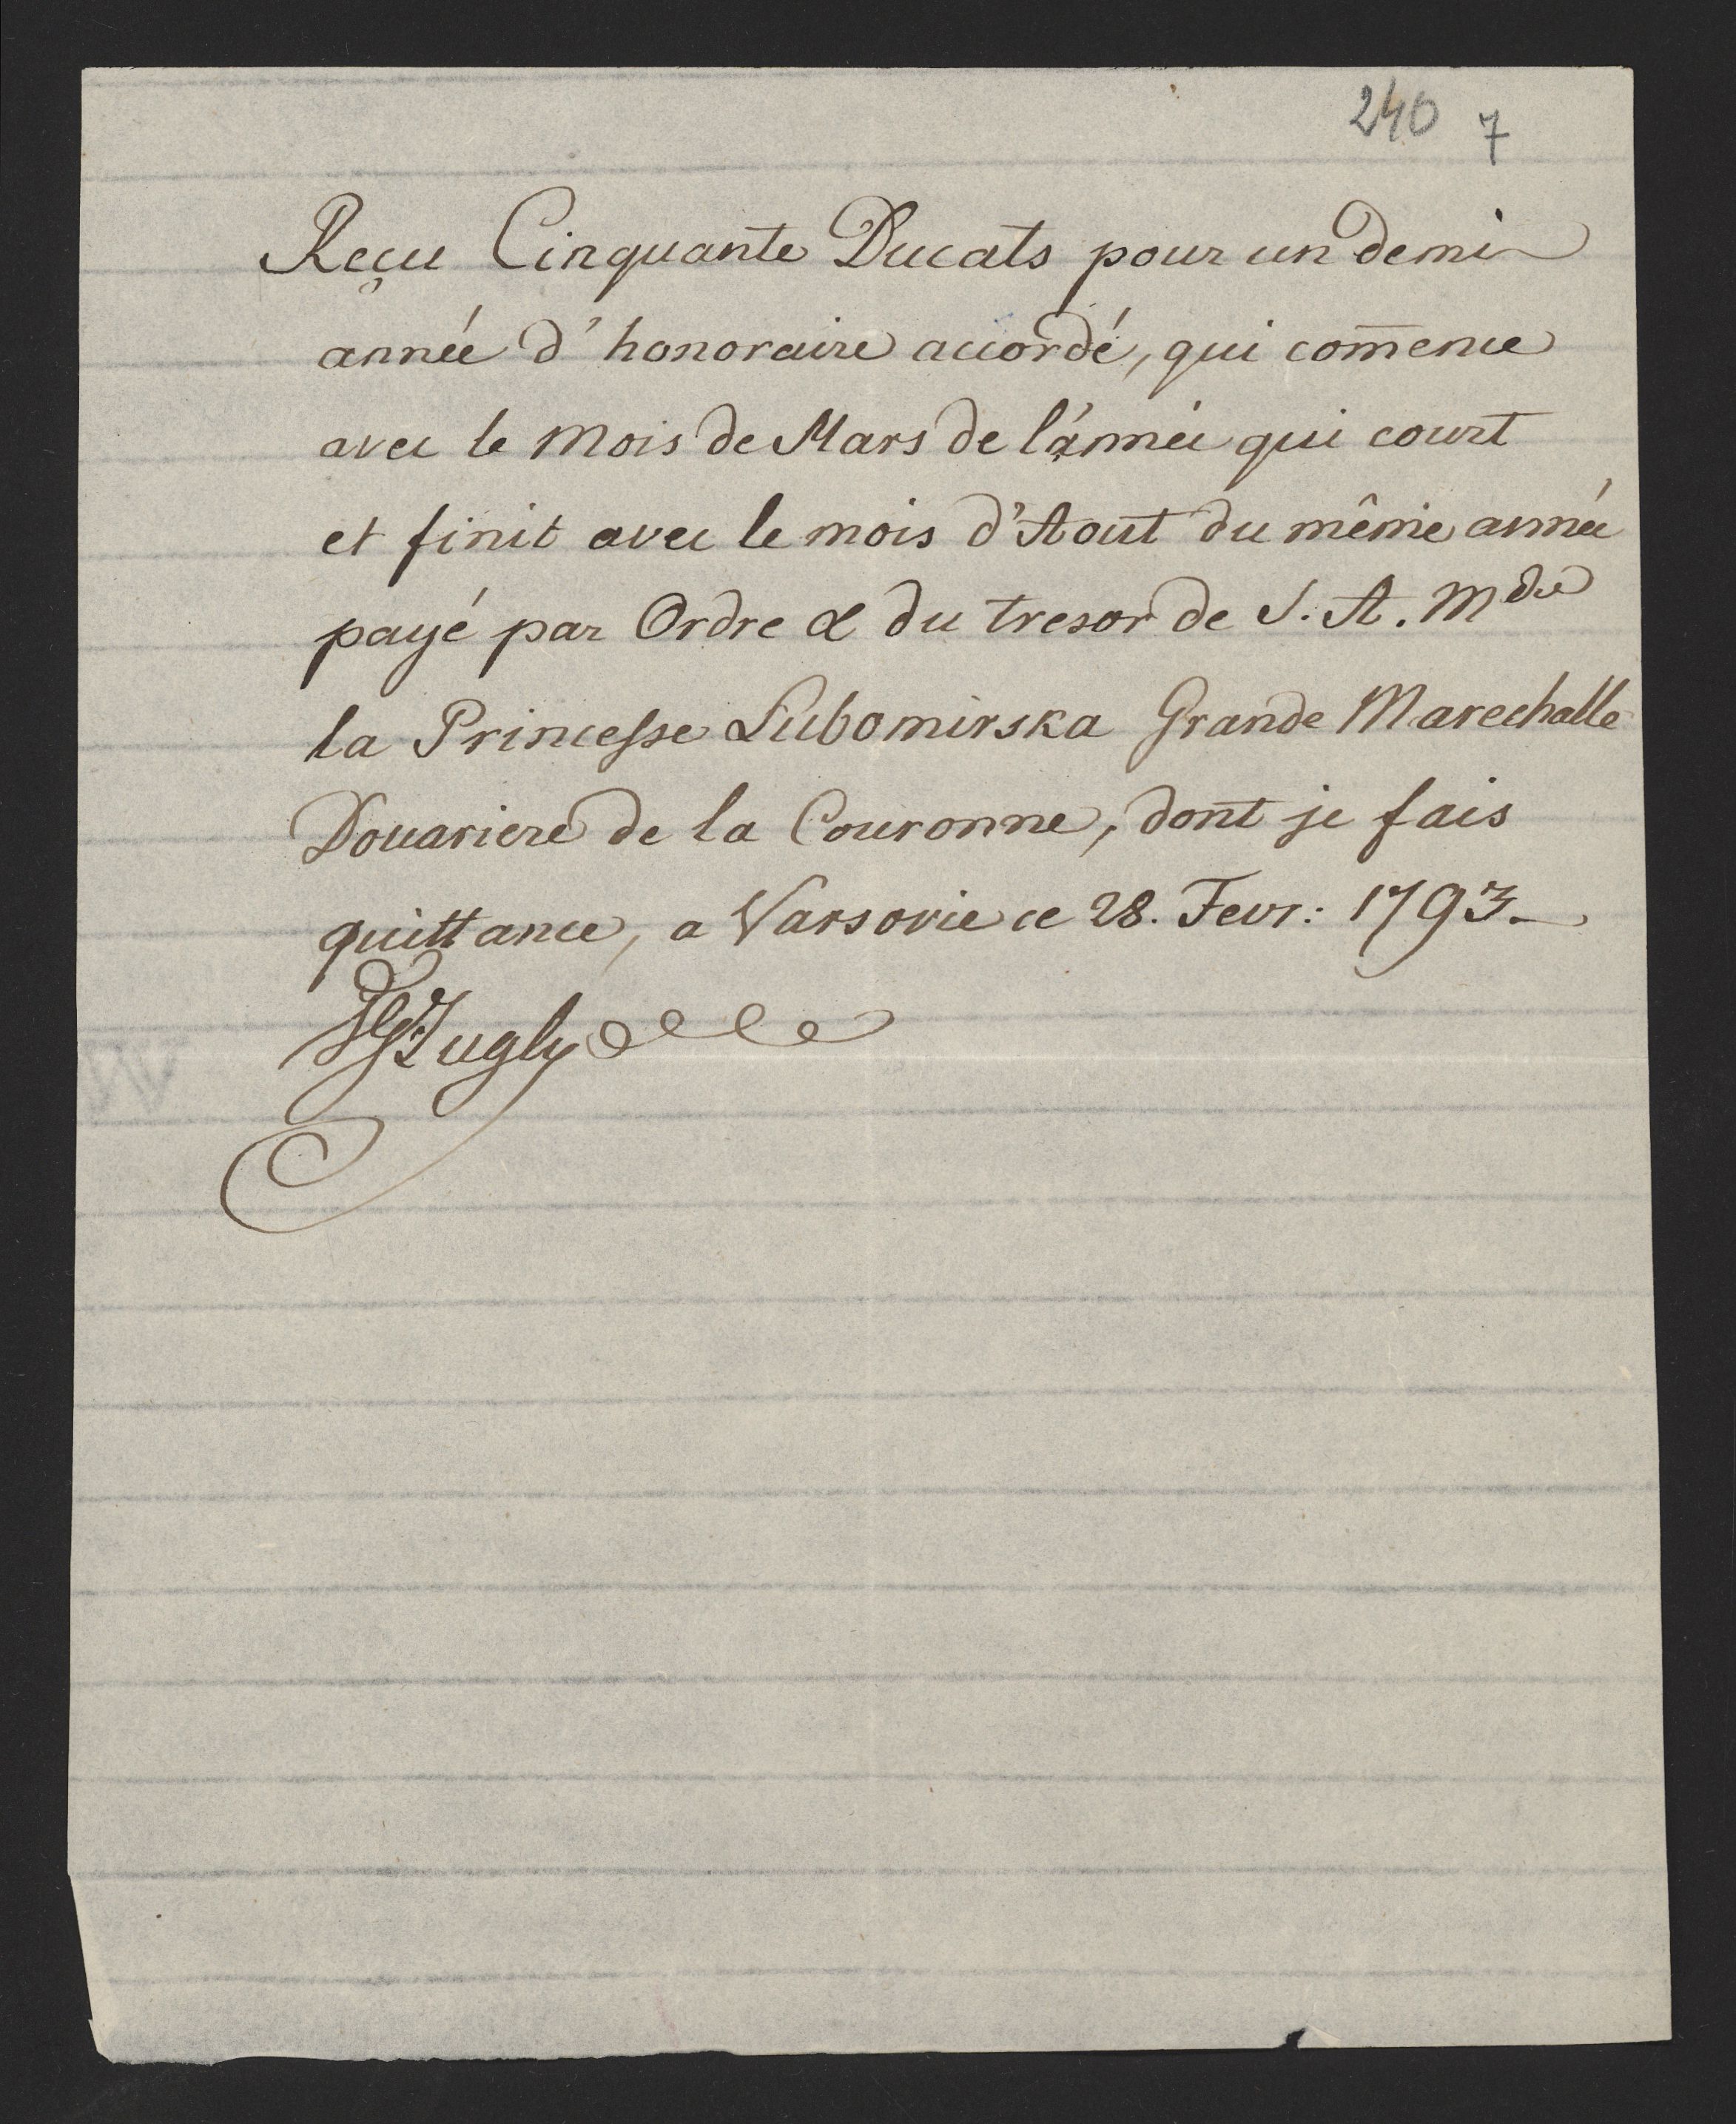 240 7
Reçu Cinquante Ducats pour un demi
année d'honoraire accordé, qui com̄ence
avec le Mois de Mars de l'année qui court
et finit avec le mois d'Aout du même année
payé par Ordre & du tresor de S. A. Mde
la Princesse Lubomirska Grande Marechalle
Douariere de la Couronne, dont je fais
quittance, a Varsovie ce 28. Fevr: 1793.
Jugly